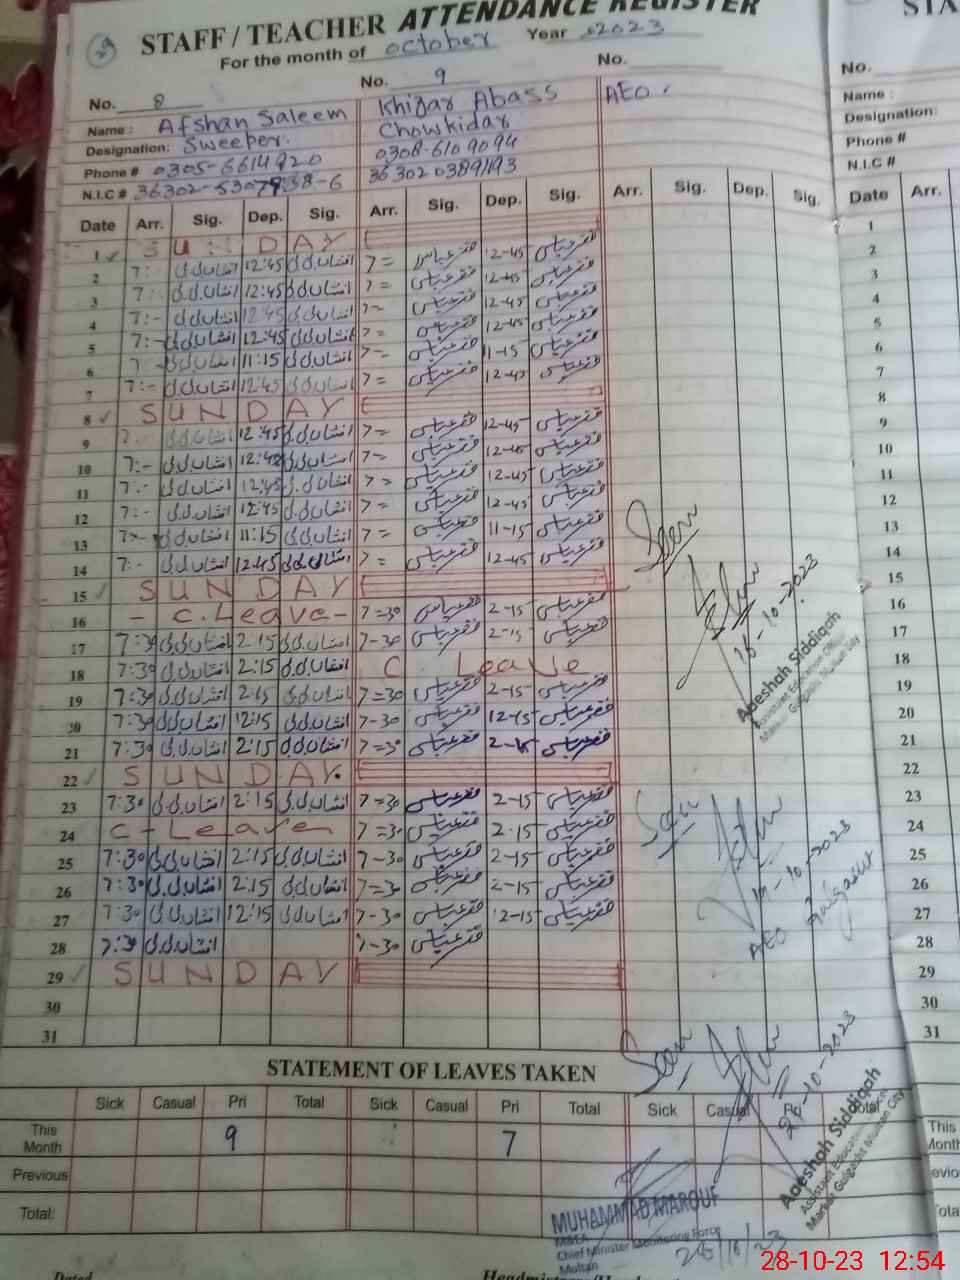 29
STAFF / TEACHER ATTENDANCE REGISTER
For the month of October Year 2023
No. 8 No. 9 No.
Name : Afshan Saleem Khizar Abass AEO.
Designation: Sweeper. Chowkidar
Phone # 0305-6614920 0308-6109094
N.I.C # 36302-5307938-6 3630203891193
Date Arr. Sig. Dep. Sig. Arr. Sig. Dep. Sig. Arr. Sig. Dep. Sig.
1 SUNDAY
2 7:- افشاں بی بی 12:45 افشاں بی بی 7= خضر عباس 12-45 خضر عباس
3 7:- افشاں بی بی 12:45 افشاں بی بی 7= خضر عباس 12-45 خضر عباس
4 7:- افشاں بی بی 12:45 افشاں بی بی 7= خضر عباس 12-45 خضر عباس
5 7:- افشاں بی بی 12:45 افشاں بی بی 7= خضر عباس 12-45 خضر عباس
6 7:- افشاں بی بی 11:15 افشاں بی بی 7= خضر عباس 11-15 خضر عباس
7 7:- افشاں بی بی 12:45 افشاں بی بی 7= خضر عباس 12-45 خضر عباس
8 SUNDAY
9 7:- افشاں بی بی 12:45 افشاں بی بی 7= خضر عباس 12-45 خضر عباس
10 7:- افشاں بی بی 12:45 افشاں بی بی 7= خضر عباس 12-45 خضر عباس
11 7:- افشاں بی بی 12:45 افشاں بی بی 7= خضر عباس 12-45 خضر عباس
12 7:- افشاں بی بی 12:45 افشاں بی بی 7= خضر عباس 12-45 خضر عباس
13 7:- افشاں بی بی 11:15 افشاں بی بی 7= خضر عباس 11-15 خضر عباس
14 7:- افشاں بی بی 12:45 افشاں بی بی 7= خضر عباس 12-45 خضر عباس
15 SUNDAY
16 - C. Leave - 7=30 خضر عباس 2-15 خضر عباس
17 7:30 افشاں بی بی 2:15 افشاں بی بی 7-30 خضر عباس 2-15 خضر عباس
18 7:30 افشاں بی بی 2:15 افشاں بی بی C. Leave
19 7:30 افشاں بی بی 2:15 افشاں بی بی 7=30 خضر عباس 2-15 خضر عباس
20 7:30 افشاں بی بی 12:15 افشاں بی بی 7-30 خضر عباس 12-15 خضر عباس
21 7:30 افشاں بی بی 2:15 افشاں بی بی 7=30 خضر عباس 2-15 خضر عباس
22 SUNDAY.
23 7:30 افشاں بی بی 2:15 افشاں بی بی 7=30 خضر عباس 2-15 خضر عباس
24 C - Leave 7=30 خضر عباس 2-15 خضر عباس
25 7:30 افشاں بی بی 2:15 افشاں بی بی 7-30 خضر عباس 2-15 خضر عباس
26 7:30 افشاں بی بی 2:15 افشاں بی بی 7=30 خضر عباس 2-15 خضر عباس
27 7:30 افشاں بی بی 12:15 افشاں بی بی 7-30 خضر عباس 12-15 خضر عباس
28 7:30 افشاں بی بی 7-30 خضر عباس
29 SUNDAY
30
31
Seen
16-10-2023
Aaeshah Siddiqah
Assistant Education Officer
Markaz Gulgasht Multan City
Seen
19-10-2023
AEO Gulgasht
Seen
21-10-2023
Aaeshah Siddiqah
Assistant Education Officer
Markaz Gulgasht Multan City
STATEMENT OF LEAVES TAKEN
Sick Casual Pri Total Sick Casual Pri Total Sick Casual Pri Total
This Month 9 7
Previous
Total:
MUHAMMAD MAROUF
M&EA
Chief Minister Monitoring Force
Multan
28/10/23
Dated
STA
No.
Name :
Designation:
Phone #
N.I.C #
Date Arr.
1
2
3
4
5
6
7
8
9
10
11
12
13
14
15
16
17
18
19
20
21
22
23
24
25
26
27
28
29
30
31
This
28-10-23 12:54